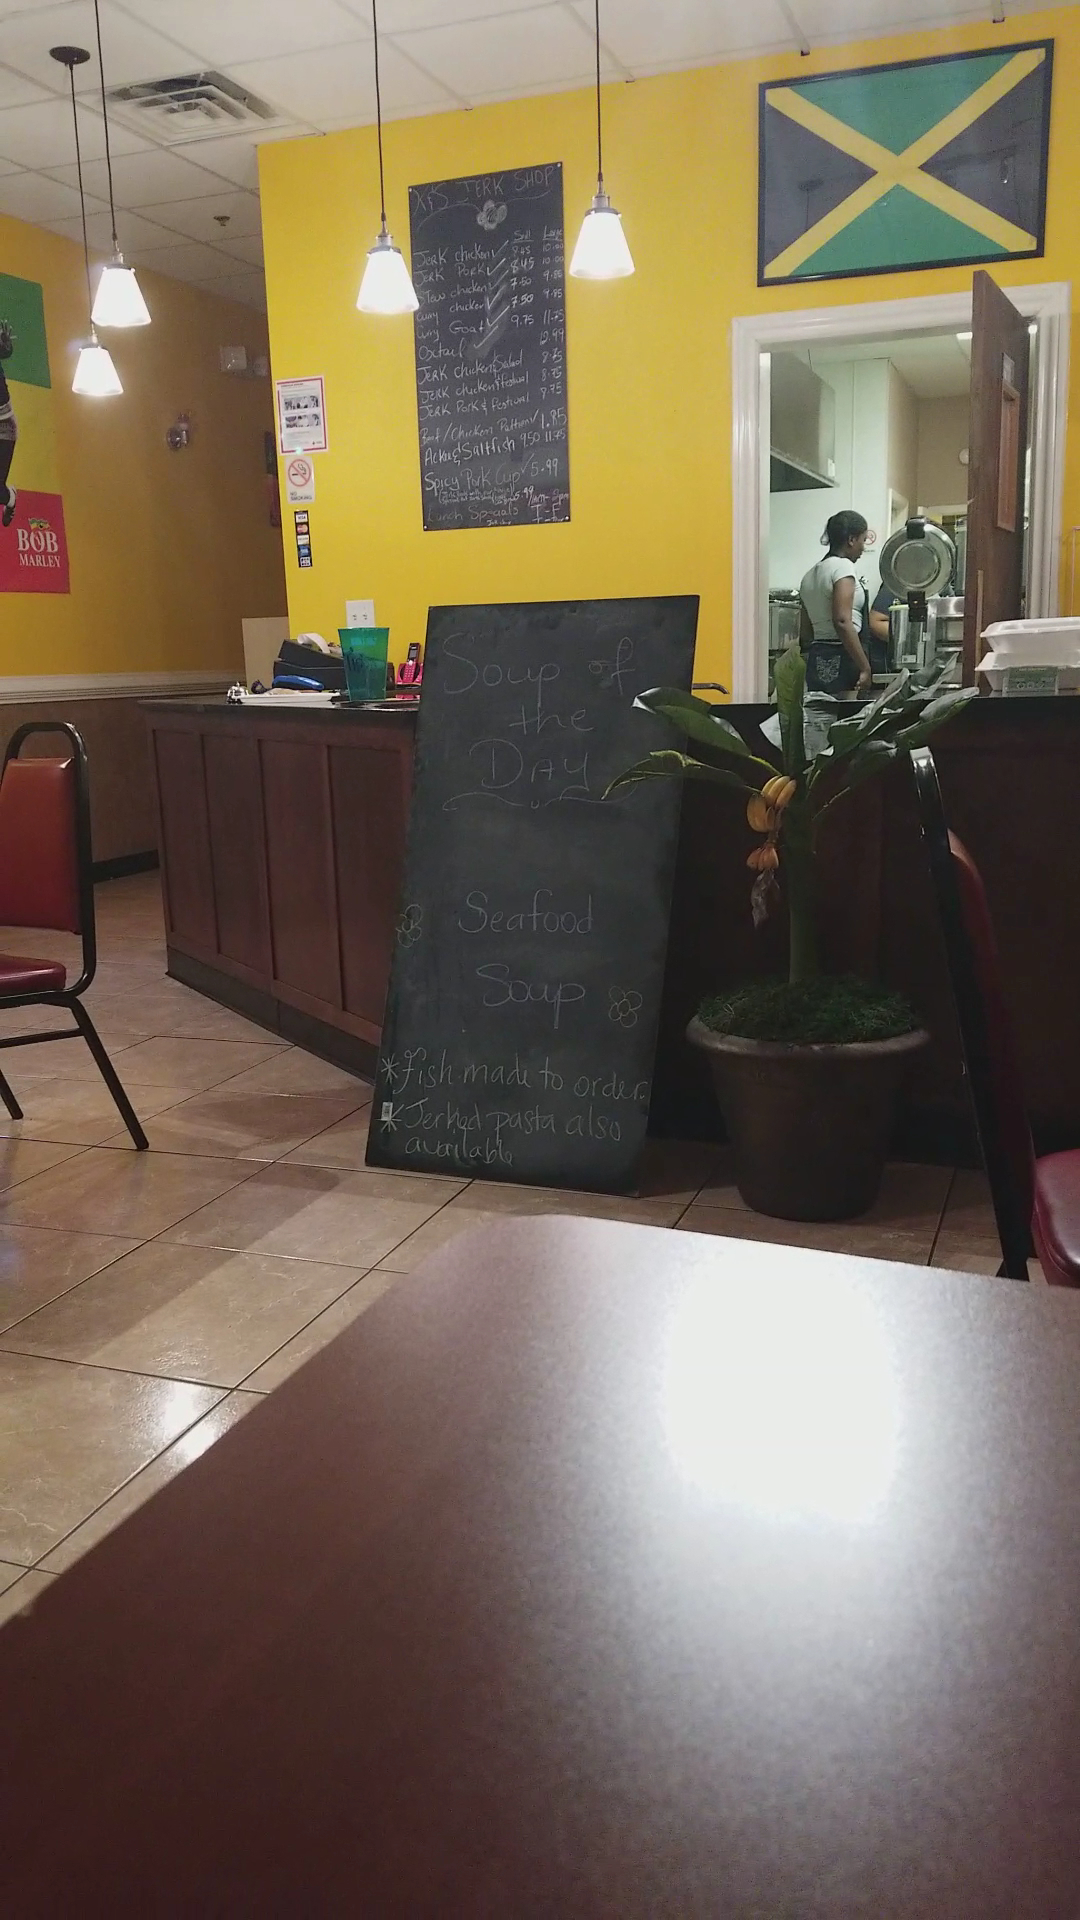 JERK SHOP
Sml Large
JERK chicken 8.45 10.00
JERK Pork 8.45 10.00
Stew chicken 7.50 9.85
Curry chicken 7.50 9.85
Curry Goat 9.75 11.75
Oxtail 12.99
JERK chicken Salad 8.75
JERK chicken & festival 8.75
JERK Pork & Festival 8.75
Beef/Chicken Patties 1.85
Ackee & Saltfish 9.50 11.75
Spicy Pork Cup 5.99
5.99
Lunch T-F
BOB
MARLEY
NO
SMOKING
VISA
Soup of
the
DAY
Seafood
Soup
*Fish made to order.
*Jerked pasta also
available